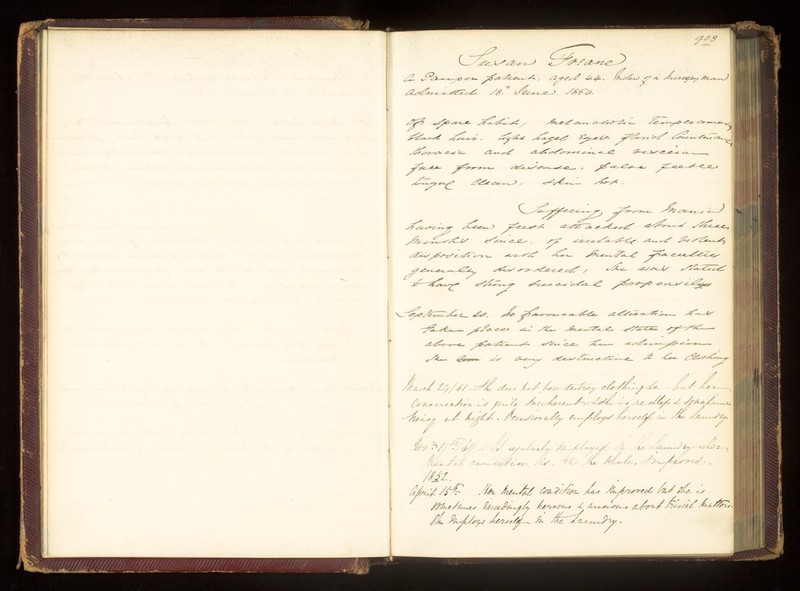 903
Susan Freane
A Pauper patient. aged 44. Widow of a
Admitted 18th June 1850.
Of spare habit, melancholic temperament
black hair. light hazel eyes. florid Countenance
thoracic and abdominal viscera
free from disease. pulse feeble
tongue clean, skin hot.
Suffering from Mania
having been first attacked about three
months since, of irritable and violent
disposition with her mental faculties
generally disordered, She was stated
to have strong suicidal propensities
September 20. No favourable alteration has
taken place in the mental state of the
above patient since her admission
She is very destructive to her Clothing
March 24/51 She does not now destroy clothing &c - but her
Conversation is quite incoherent, & she is restless & sometimes
noisy at night. Occasionally employs herself in the Laundry
Novr. 17th/51 - Is regularly employed in the Laundry - her
mental condition has on the whole, improved.
1852.
April 15th. Her mental condition has improved but she is
sometimes exceedingly nervous & anxious about trivial matters.
She employs herself in the Laundry.